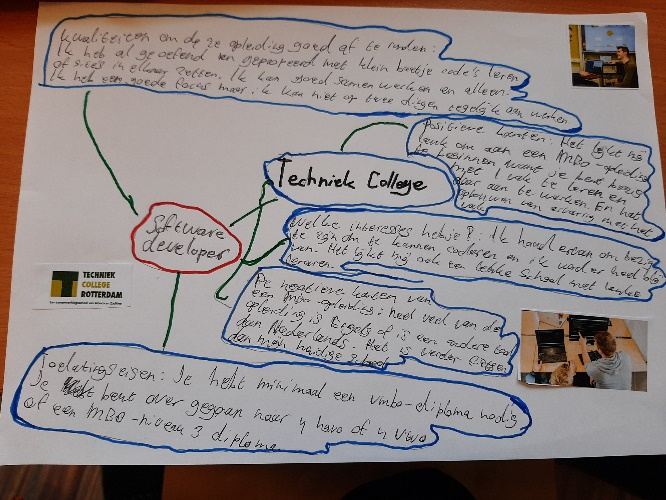 kwaliteiten om deze opleiding goed af te ronden:
Ik heb al geoefend en geprobeerd met klein beetje code's leren
of sites in elkaar zetten. Ik kan goed samenwerken en alleen.
Ik heb een goede focus maar ik kan niet op twee dingen tegelijk aan werken
Positieve kanten: Het lijkt mij
leuk om aan een MBO-opleiding
te beginnen want je bent bezig
met 1 vak te leren en
daar aan te werken. En het
opbouwen van ervaring met het
vak
Techniek College
Software
developer
Welke interesses heb je?: Ik houd ervan om bezig
te zijn om te kunnen coderen en ik word er heel blij
van. Het lijkt mij ook een leuke school met leuke
De negatieve kanten van
een mbo-opleiding: heel veel van de
opleiding is Engels of is een andere taal
dan Nederlands. Het is verder
dan mijn huidige school
TECHNIEK
COLLEGE
ROTTERDAM
Toelatingseisen: Je hebt minimaal een vmbo-diploma nodig
Je bent over gegaan naar 4 havo of 4 vwo
of een MBO-niveau 3 diploma